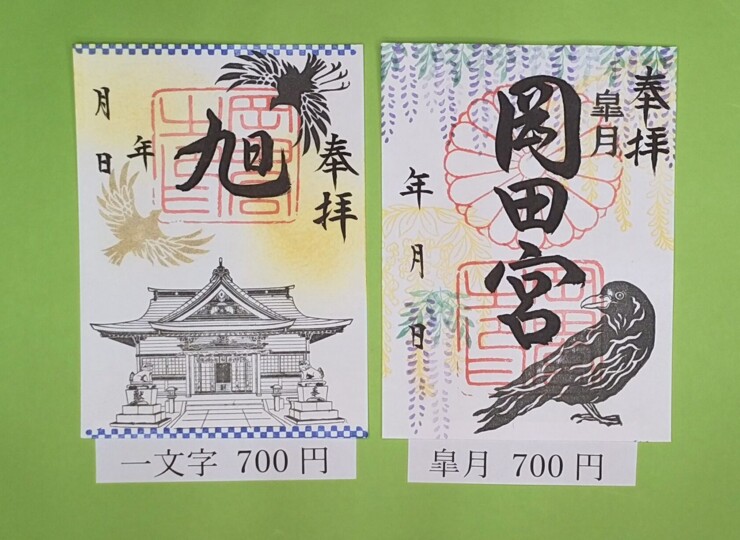 奉拝
旭
年
月
日
一文字 700円
奉拝
皐月
岡田宮
年
月
日
皐月 700円